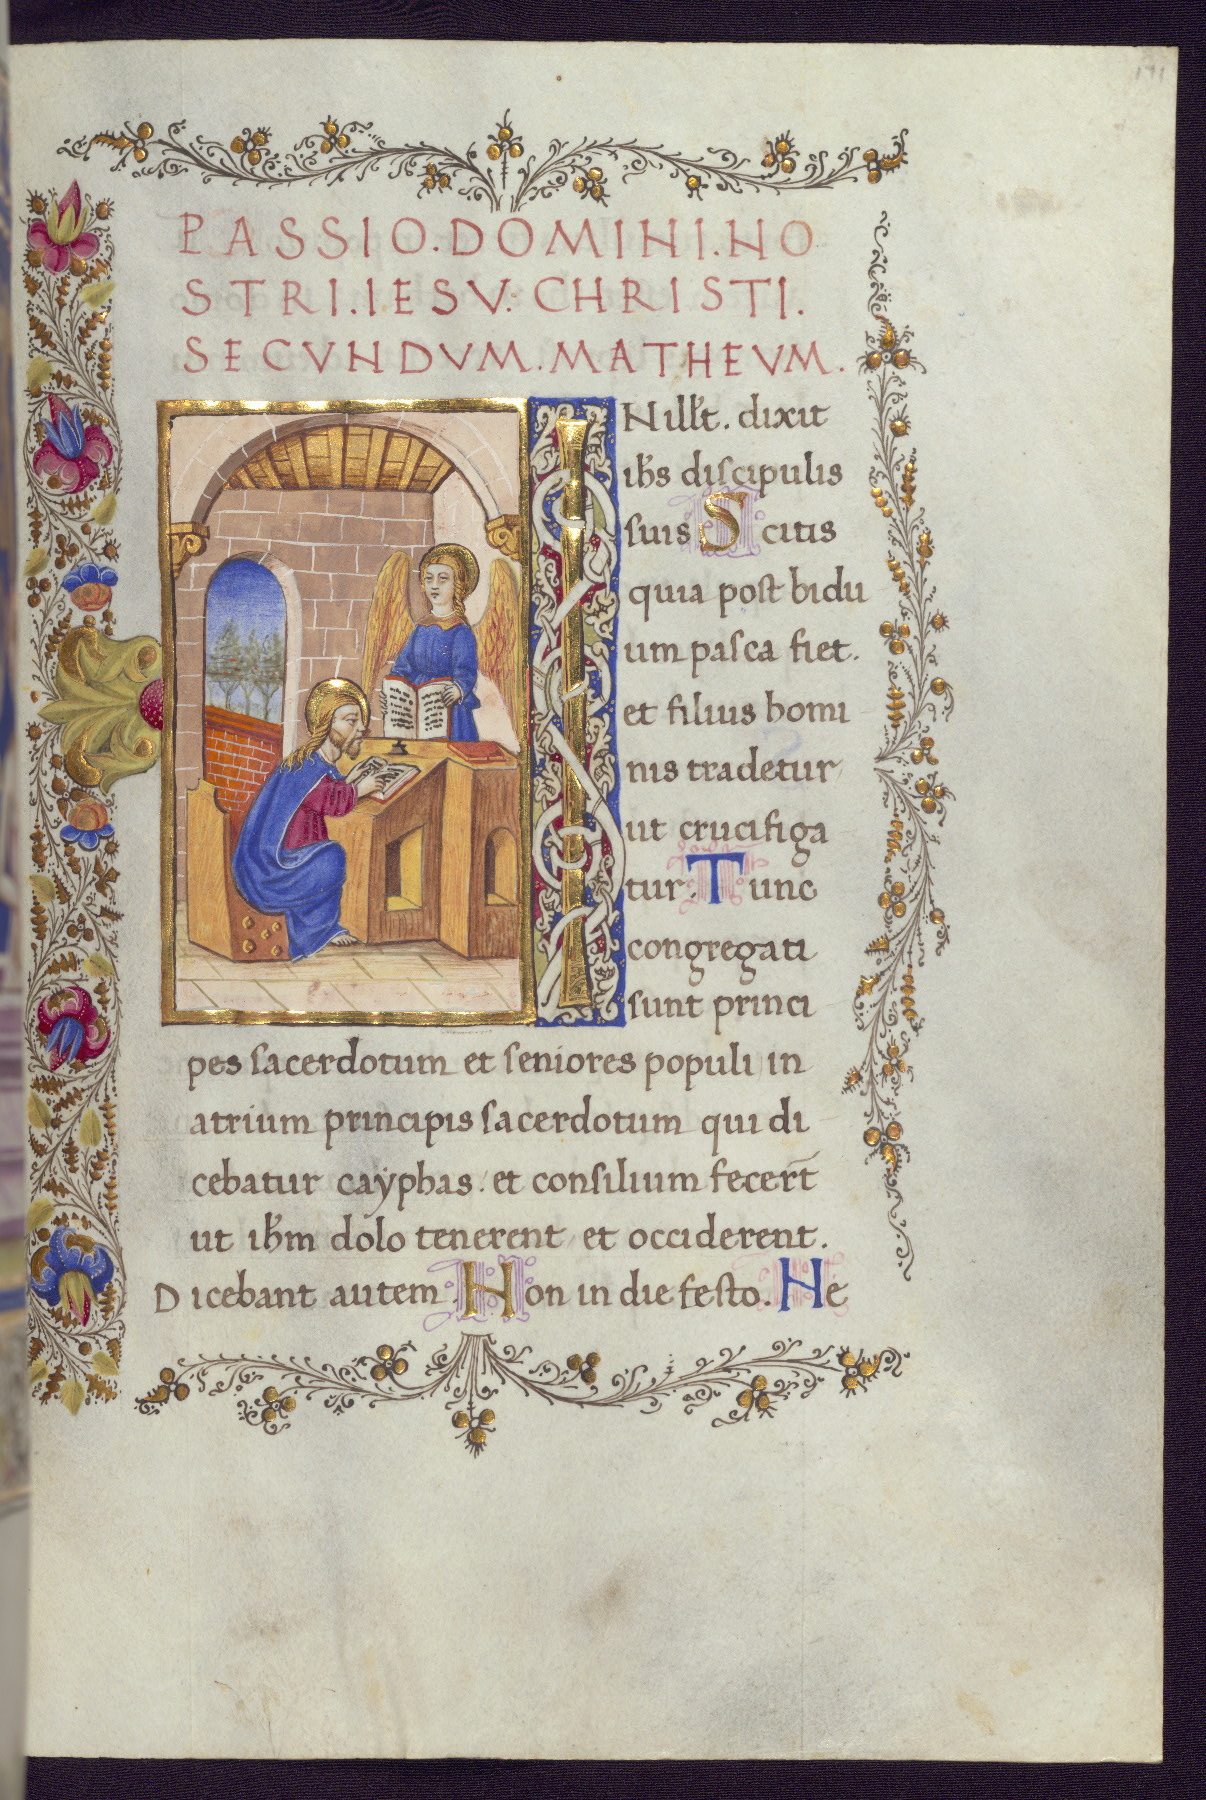 PASSIO.DOMINI.NO
STRI.IESV: CHRISTI.
SECVNDVM.MATHEVM.
IN ill't. dixit
ihs discipulis
suis Scitis
quia post bidu
um pasca fiet.
et filius homi
nis tradetur
ut crucifiga
tur. Tunc
congregati
sunt princi
pes sacerdotum et seniores populi in
atrium principis sacerdotum qui di
cebatur cayphas. et consilium fecert̄
ut ihm dolo tenerent et occiderent.
Dicebant autem. Non in die festo. Ne